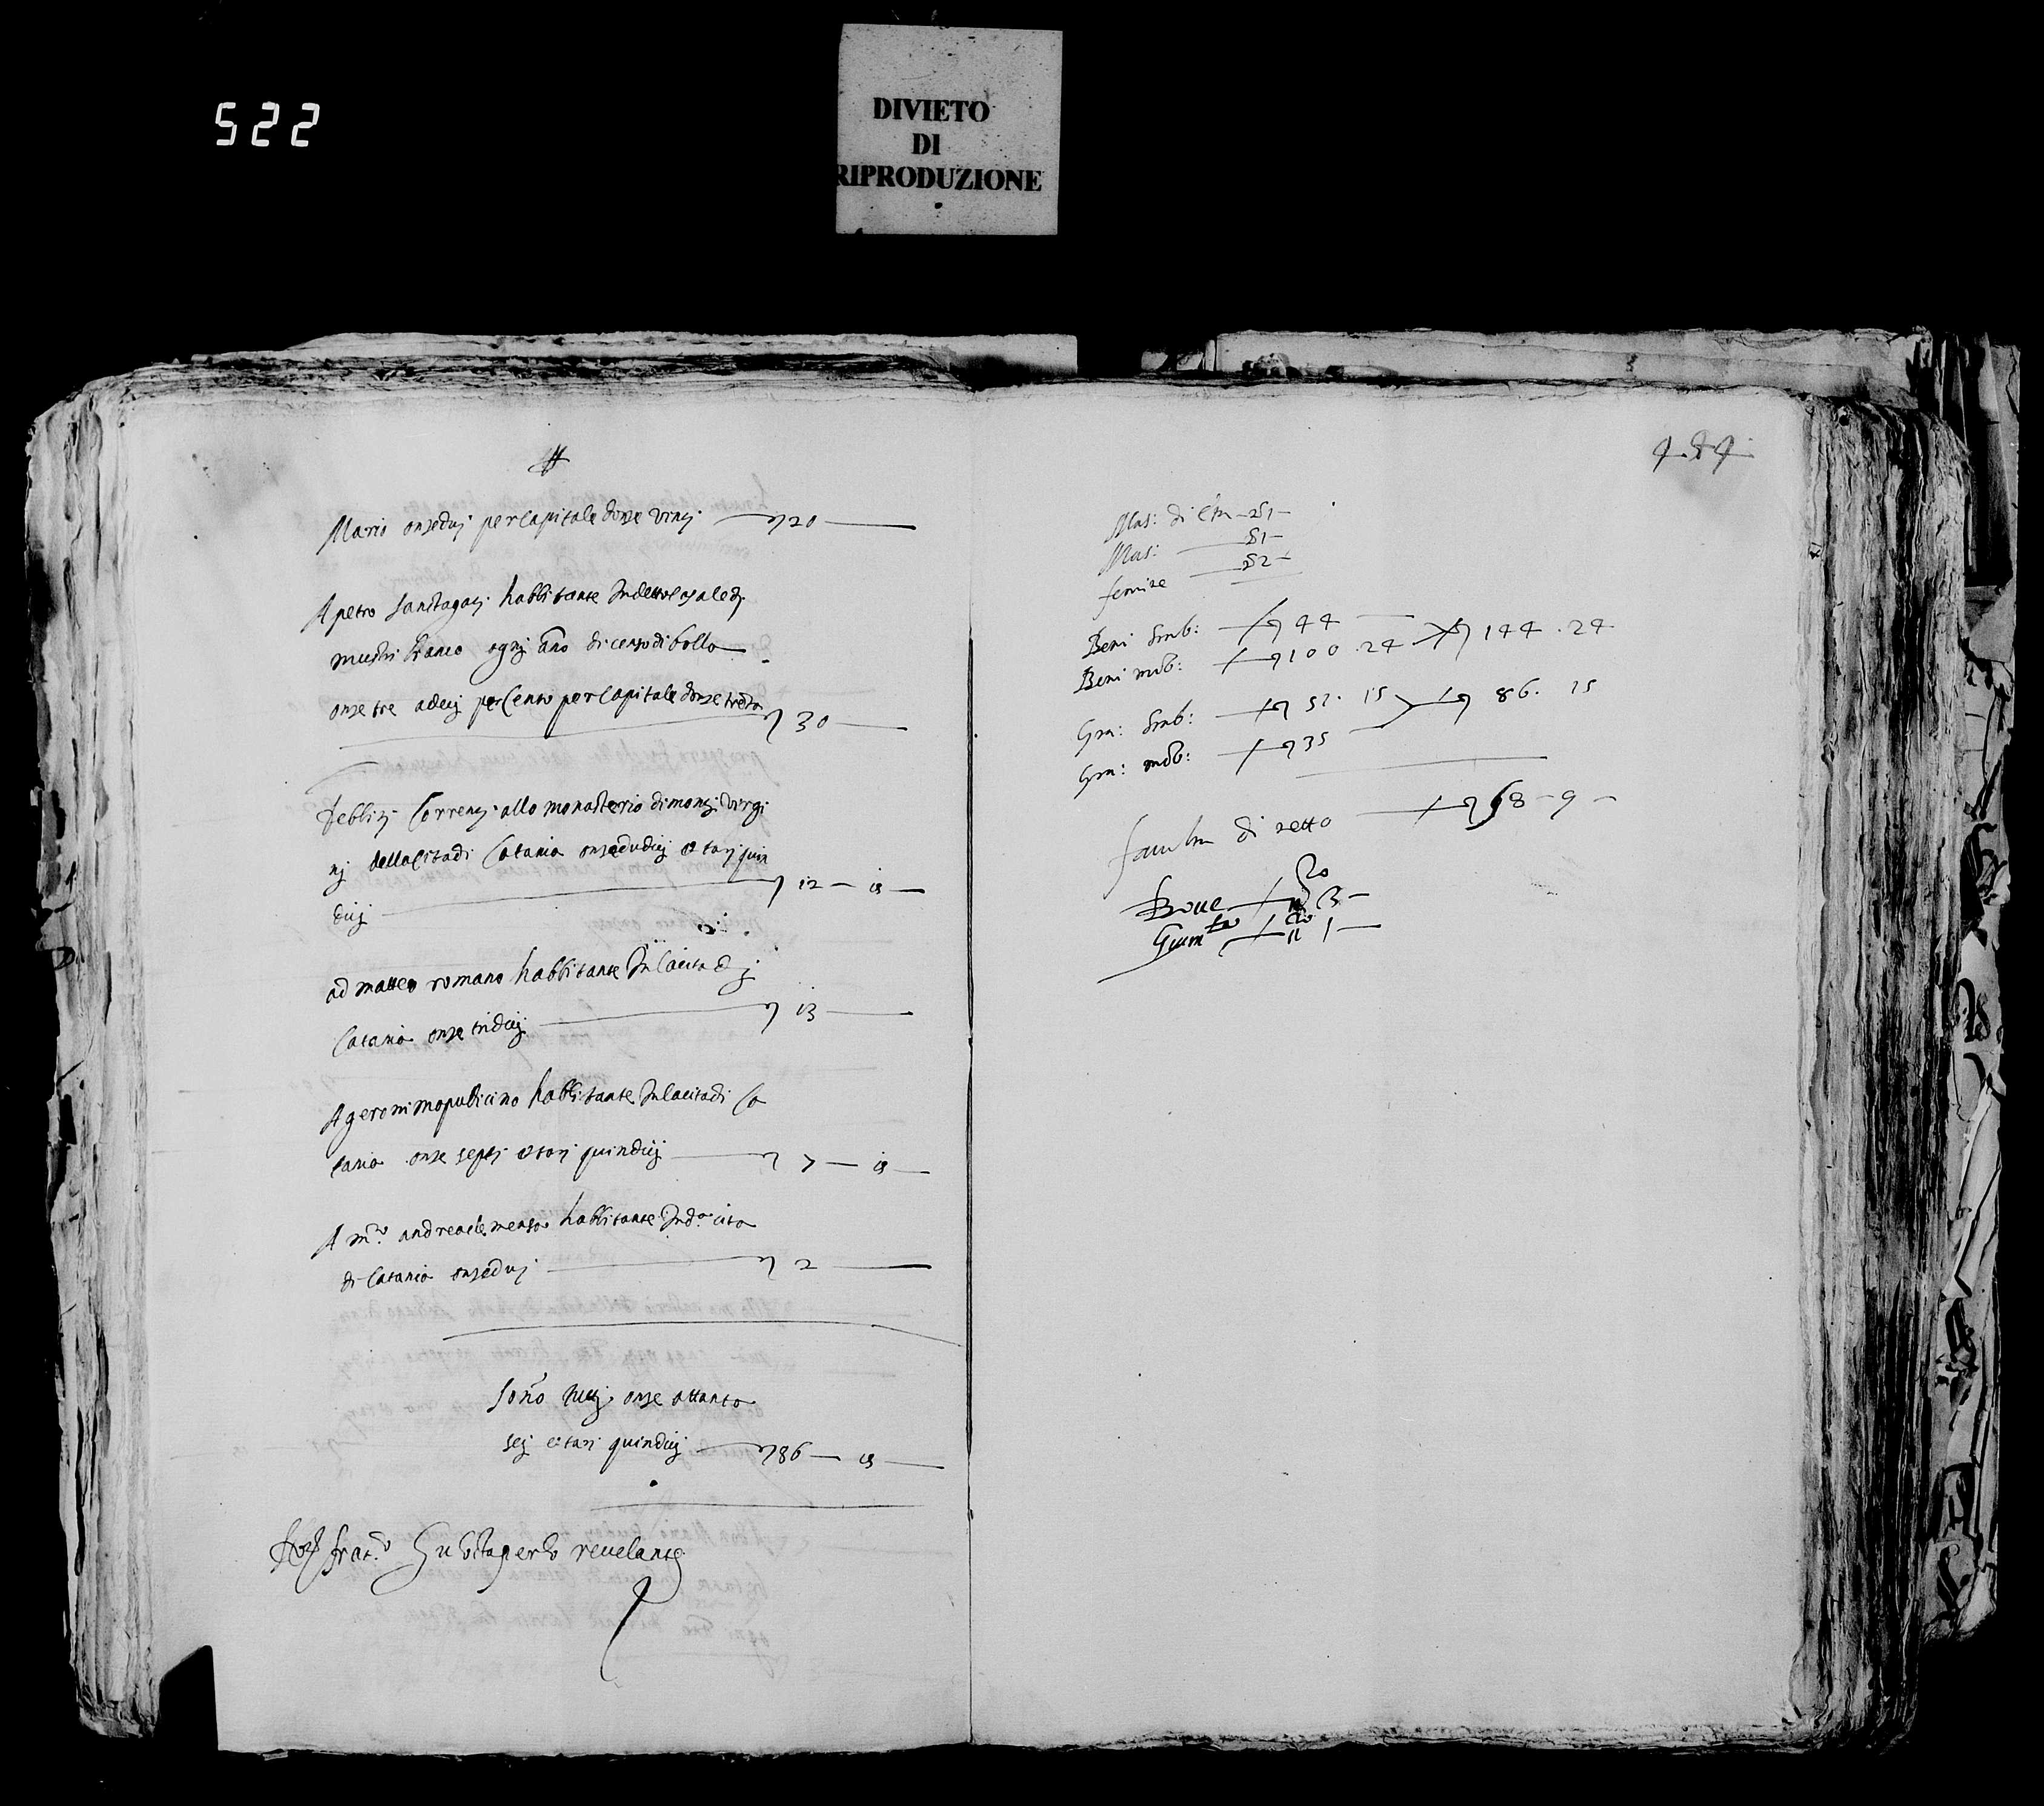 522
DIVIETO
DI
RIPRODUZIONE
Mario onze duj per capitale donze vinti 20
A petro santagati habbitante in detto casale di
mustri bianco ognj ano di censo di bolla
onze tre a decj per cento per capitale donze trenta
30
debbiti correnti allo monasterio di monti virgi
nj della cita di Catania onze dudicj et tarj quin
dicj 12 15
ad matteo romano habbitante in la cita dj
Catania onze tridicj 13
A geronimo pudicino habbitante in la cita di Ca
tania onze septi et tarj quindicj 7 15
A m.ro andrea habbitante in d.a cita
di Catania onze duj 2
sono tuttj onze ottanta
sej et tarj quindicj 86 15
revelante
Mas: di 251
Mas: 51
femine 52
Beni stab: 44
Beni mob: 100.24 144.24
Gra: stab: 51.15 86.15
Gra: mob: 35
di netto 58 9
Bove 3
Gium.te 1